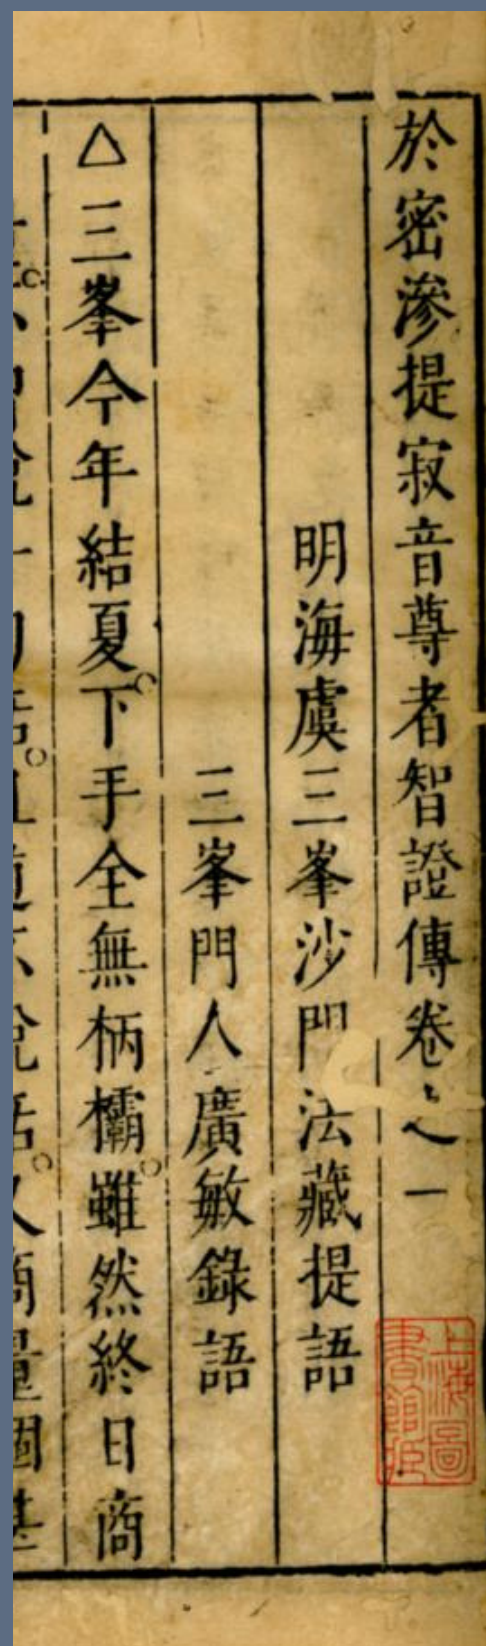 於密滲提寂音尊者智證傳卷之一
明海虞三峯沙門法藏提語
三峯門人廣敏錄語
△三峯今年結夏。下手全無柄欛。雖然終日商
上海圖書館藏